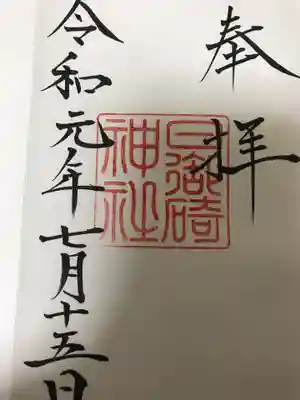 奉拝
日御碕
神社
令和元年七月十五日